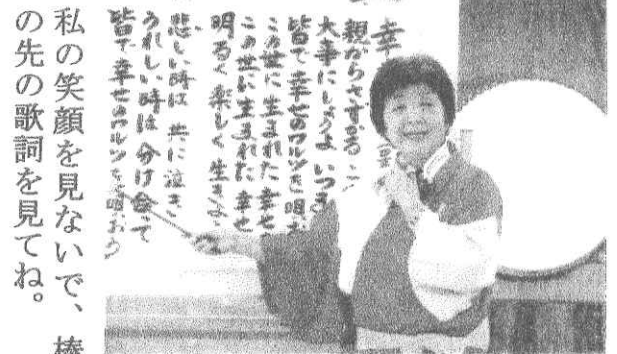 幸
親からさずかる
大事にしようよ いつま
皆で 幸せのワルツを 唄お
この世に 生まれた 幸せ
この世に 生まれた 幸せ
明るく 楽しく 生きよ
悲しい時は 共に泣き
うれしい時は 分け合って
皆で 幸せのワルツを唄おう
私の笑顔を見ないで、棒
の先の歌詞を見てね。